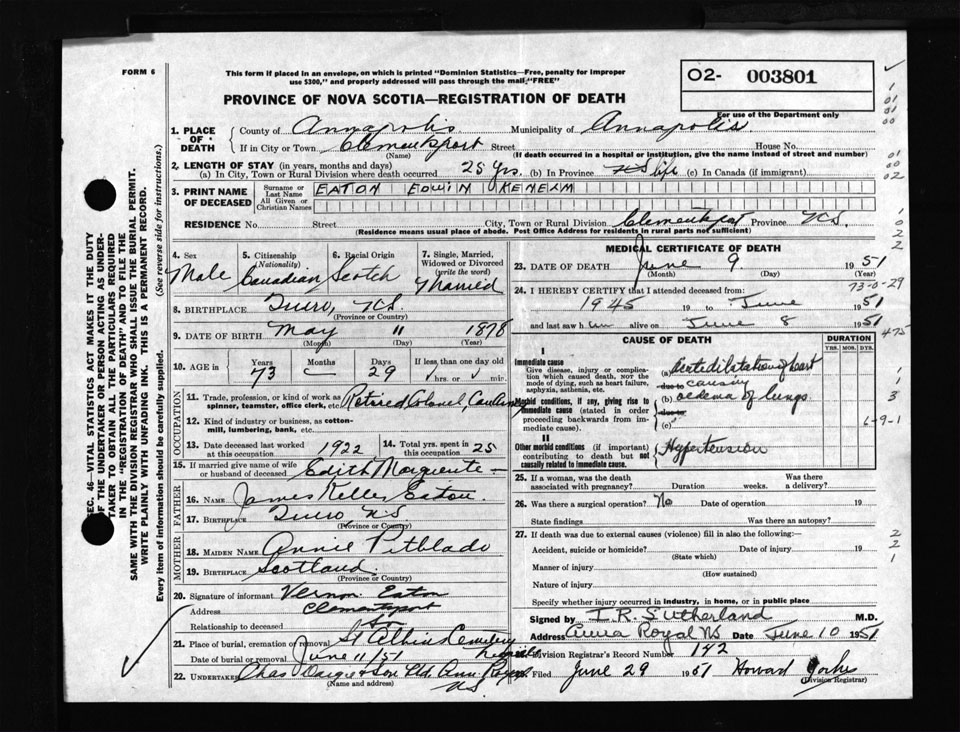 FORM 6
This form if placed in an envelope, on which is printed "Dominion Statistics—Free, penalty for improper
use $300," and properly addressed will pass through the mail "FREE"
O2- 003801
For use of the Department only
PROVINCE OF NOVA SCOTIA—REGISTRATION OF DEATH
1. PLACE OF DEATH County of Annapolis Municipality of Annapolis
If in City or Town Clementsport Street House No.
(Name) (If death occurred in a hospital or institution, give the name instead of street and number)
2. LENGTH OF STAY (in years, months and days)
(a) In City, Town or Rural Division where death occurred 25 yrs. (b) In Province life (c) In Canada (if immigrant)
3. PRINT NAME OF DECEASED Surname or Last Name All Given or Christian Names EATON EDWIN KENELM
RESIDENCE No. Street City, Town or Rural Division Clementsport Province N.S.
(Residence means usual place of abode. Post Office Address for residents in rural parts not sufficient)
4. Sex Male
5. Citizenship (Nationality) Canadian
6. Racial Origin Scotch
7. Single, Married, Widowed or Divorced (write the word) Married
8. BIRTHPLACE Truro, N.S.
(Province or Country)
9. DATE OF BIRTH May 11 1878
(Month) (Day) (Year)
10. AGE in Years 73 Months — Days 29 If less than one day old hrs. or min.
OCCUPATION
11. Trade, profession, or kind of work as spinner, teamster, office clerk, etc. Retired Colonel,
12. Kind of industry or business, as cotton-mill, lumbering, bank, etc.
13. Date deceased last worked at this occupation 1922
14. Total yrs. spent in this occupation 25
15. If married give name of wife or husband of deceased Edith Marguerite
FATHER
16. NAME James Keller Eaton
17. BIRTHPLACE Truro, N.S.
(Province or Country)
MOTHER
18. MAIDEN NAME Annie Pitblado
19. BIRTHPLACE Scotland
(Province or Country)
20. Signature of informant Vernon Eaton
Address Clementsport
Relationship to deceased Son
21. Place of burial, cremation or removal Cemetery
Date of burial or removal June 11/51
22. UNDERTAKER Chas Dargie & Son Ltd. Ann. Royal
N.S.
(Name and address)
MEDICAL CERTIFICATE OF DEATH
23. DATE OF DEATH June 9 1951
(Month) (Day) (Year)
73-0-29
24. I HEREBY CERTIFY that I attended deceased from:
1945 19 to June 1951
and last saw him alive on June 8 1951
475
CAUSE OF DEATH
DURATION
YRS. MOS. DYS.
I
Immediate cause
Give disease, injury or complication which caused death, not the mode of dying, such as heart failure, asphyxia, asthenia, etc.
(a) Acute dilatation of heart
due to causing
Morbid conditions, if any, giving rise to immediate cause (stated in order proceeding backwards from immediate cause).
(b) oedema of lungs
due to
(c)
II
Other morbid conditions (if important) contributing to death but not causally related to immediate cause.
Hypertension
6-9-1
25. If a woman, was the death associated with pregnancy? Duration weeks. Was there a delivery?
26. Was there a surgical operation? No Date of operation 19
State findings Was there an autopsy?
27. If death was due to external causes (violence) fill in also the following:—
Accident, suicide or homicide? Date of injury 19
(State which)
Manner of injury
(How sustained)
Nature of injury
Specify whether injury occurred in industry, in home, or in public place
Signed by I. R. Sutherland M.D.
Address Anna Royal NS Date June 10 1951
28. Division Registrar's Record Number 142
Filed June 29 1951 Howard
(Division Registrar)
SEC. 46—VITAL STATISTICS ACT MAKES IT THE DUTY
OF THE UNDERTAKER OR PERSON ACTING AS UNDER-
TAKER TO OBTAIN ALL THE PARTICULARS REQUIRED
IN THE "REGISTRATION OF DEATH" AND TO FILE THE
SAME WITH THE DIVISION REGISTRAR WHO SHALL ISSUE THE BURIAL PERMIT.
WRITE PLAINLY WITH UNFADING INK. THIS IS A PERMANENT RECORD.
Every item of information should be carefully supplied. (See reverse side for instructions.)